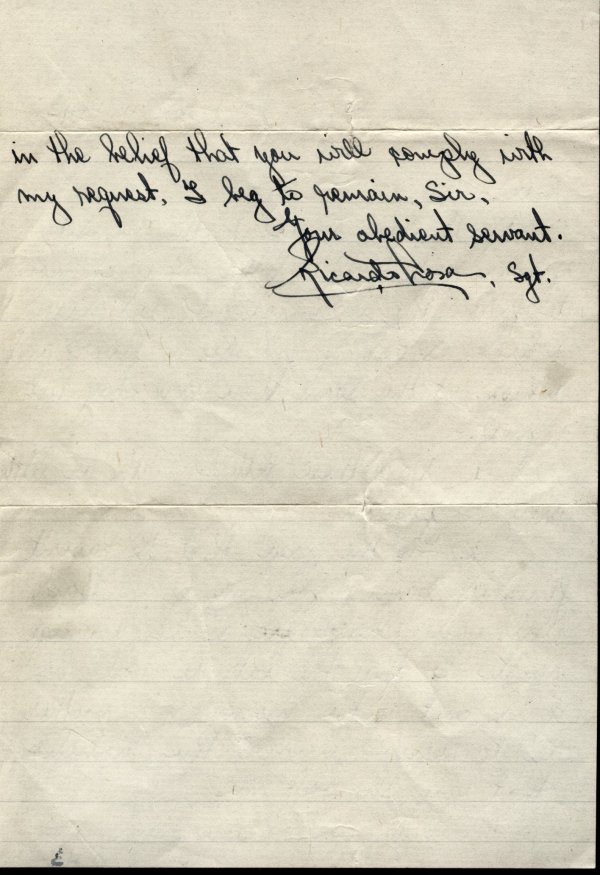 in the belief that you will comply with
my request, I beg to remain, Sir,
Your obedient servant.
Ricardo Rosa, Sgt.